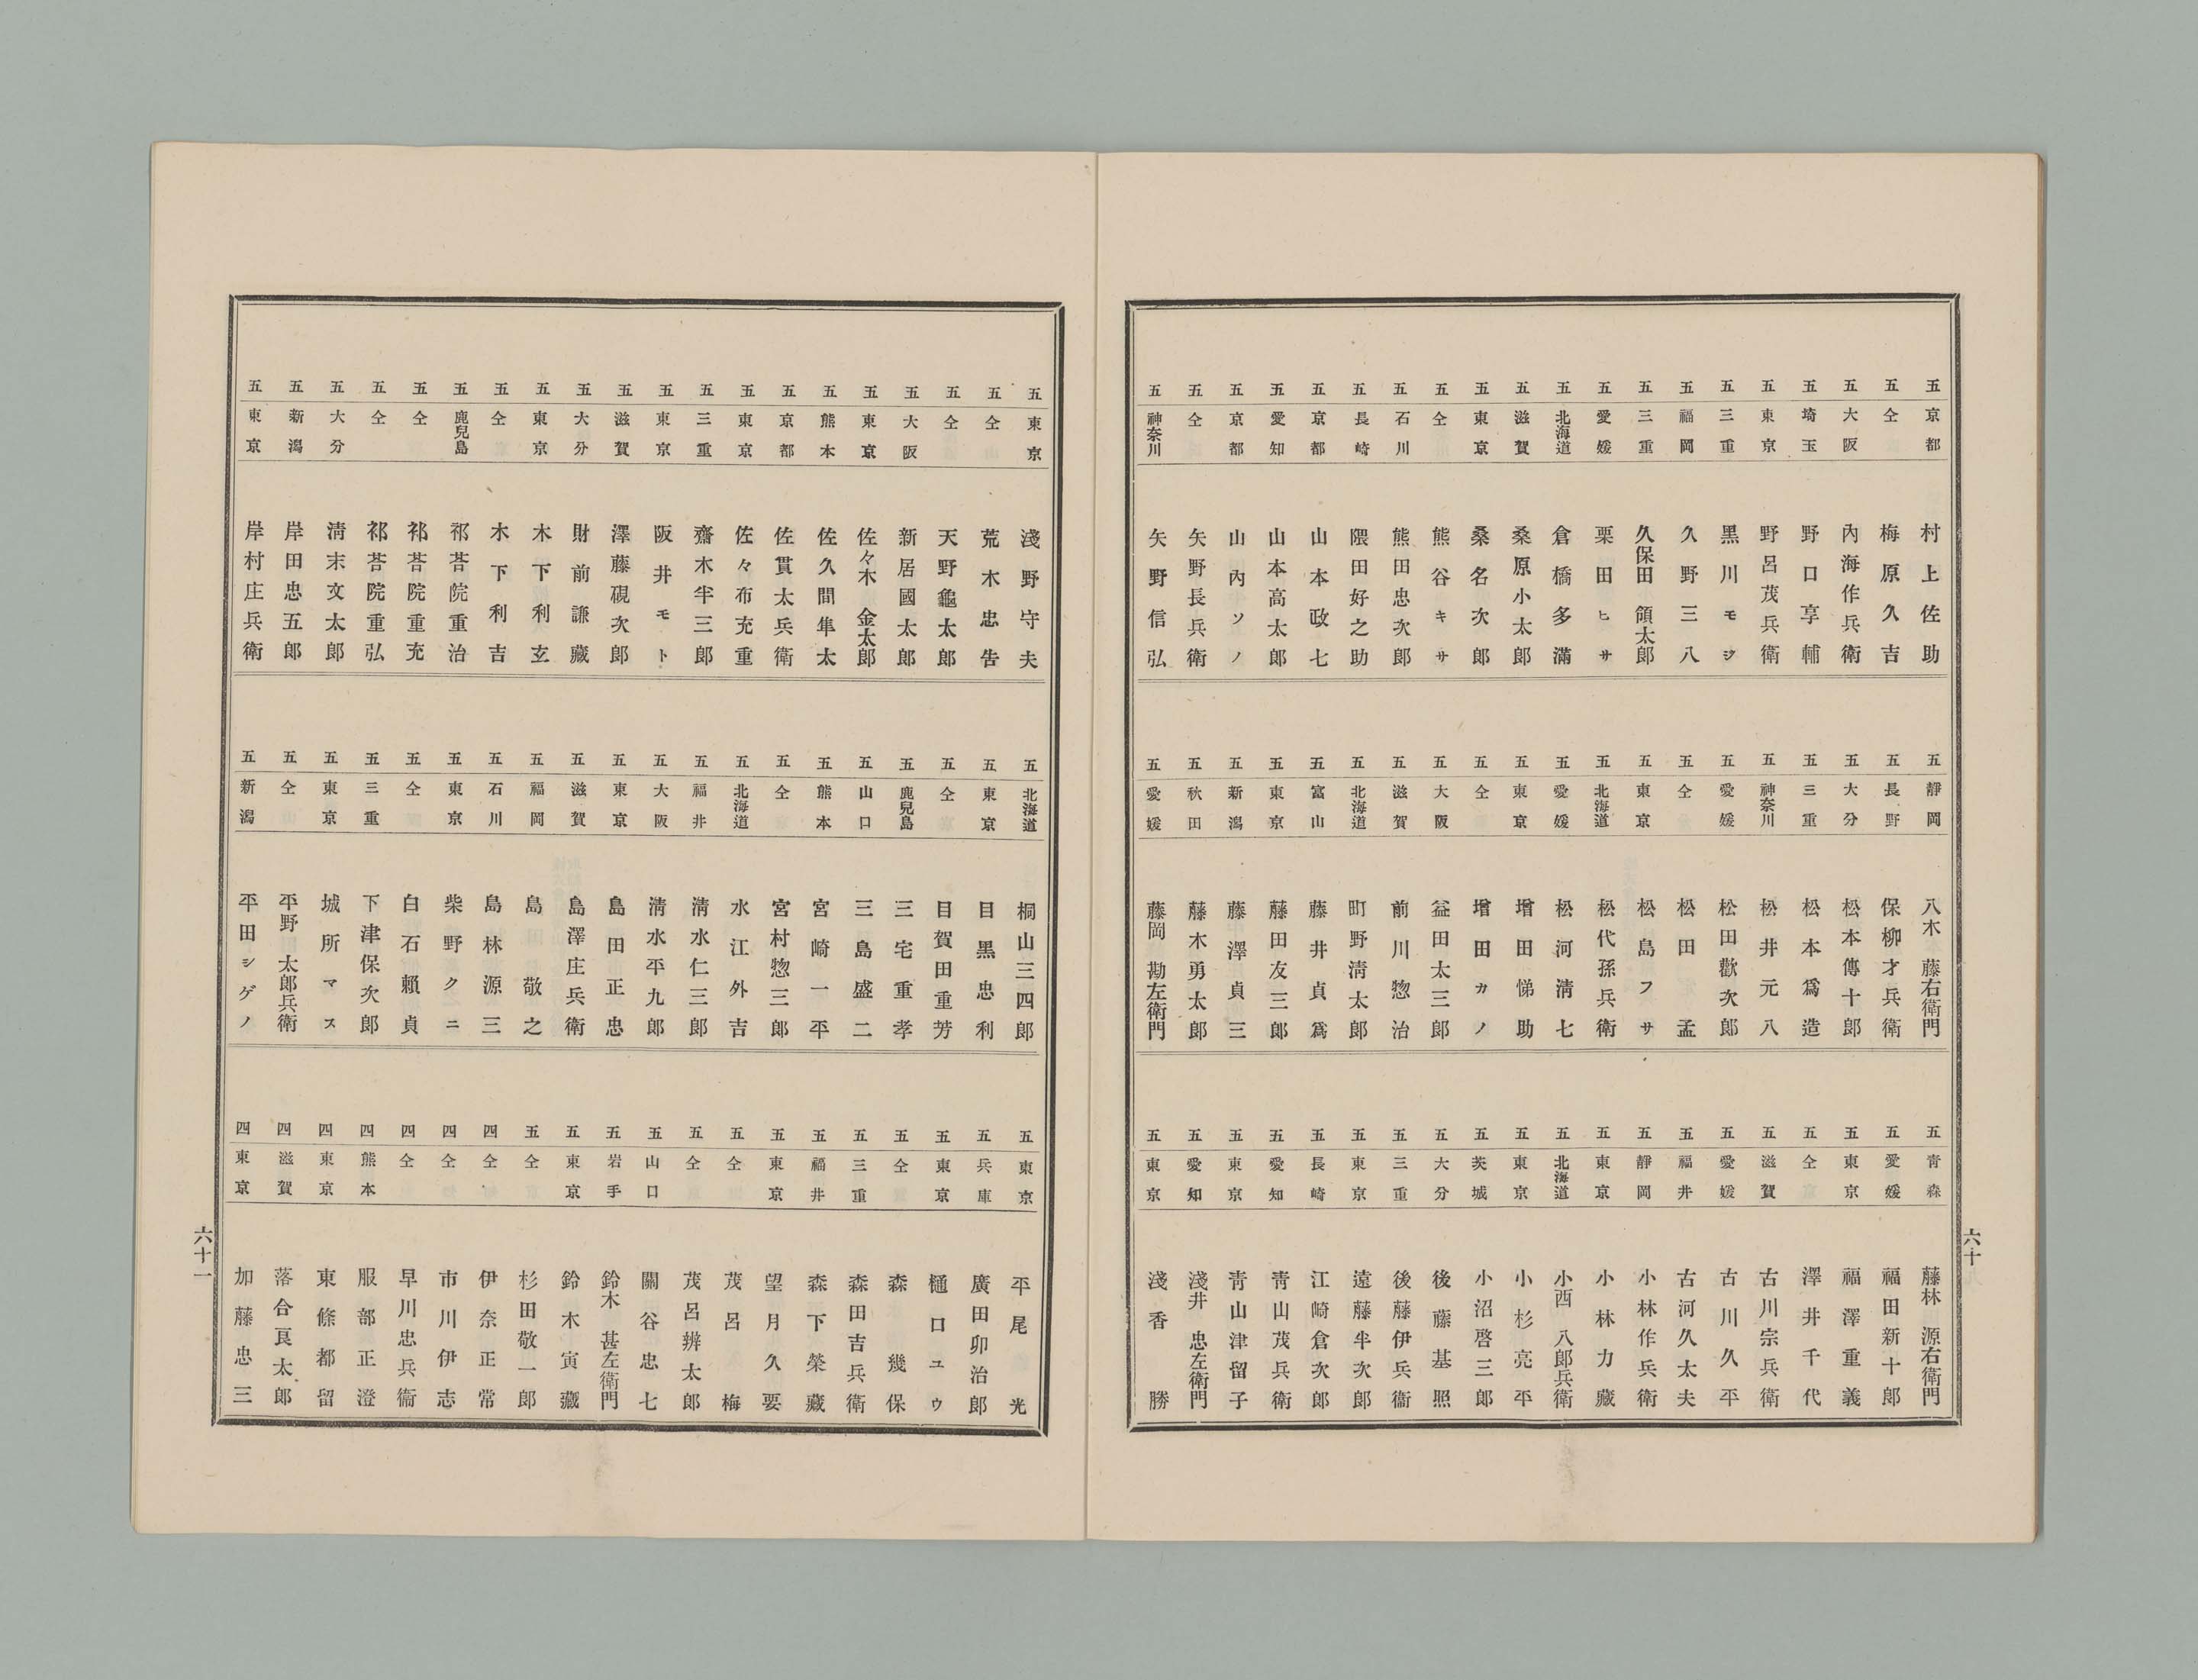 五 京都 村上佐助
五 仝 梅原久吉
五 大阪 內海作兵衛
五 埼玉 野口享輔
五 東京 野呂茂兵衛
五 三重 黑川モジ
五 福岡 久野三八
五 三重 久保田領太郎
五 愛媛 栗田ヒサ
五 北海道 倉橋多滿
五 滋賀 桑原小太郎
五 東京 桑名次郎
五 仝 熊谷キサ
五 石川 熊田忠次郎
五 長崎 隈田好之助
五 京都 山本政七
五 愛知 山本高太郎
五 京都 山內ソノ
五 仝 矢野長兵衛
五 神奈川 矢野信弘
五 靜岡 八木藤右衛門
五 長野 保柳才兵衛
五 大分 松本傳十郎
五 三重 松本爲造
五 神奈川 松井元八
五 愛媛 松田歡次郎
五 仝 松田孟
五 東京 松島フサ
五 北海道 松代孫兵衛
五 愛媛 松河淸七
五 東京 增田悌助
五 仝 增田カノ
五 大阪 益田太三郎
五 滋賀 前川惣治
五 北海道 町野淸太郎
五 富山 藤井貞爲
五 東京 藤田友三郎
五 新潟 藤澤貞三
五 秋田 藤木勇太郎
五 愛媛 藤岡勘左衛門
五 靑森 藤林源右衛門
五 愛媛 福田新十郎
五 東京 福澤重義
五 仝 澤井千代
五 滋賀 古川宗兵衛
五 愛媛 古川久平
五 福井 古河久太夫
五 靜岡 小林作兵衛
五 東京 小林力藏
五 北海道 小西八郎兵衛
五 東京 小杉亮平
五 茨城 小沼啓三郎
五 大分 後藤基照
五 三重 後藤伊兵衞
五 東京 遠藤半次郎
五 長崎 江崎倉次郎
五 愛知 靑山茂兵衛
五 東京 靑山津留子
五 愛知 淺井忠左衛門
五 東京 淺香勝
六十
五 東京 淺野守夫
五 仝 荒木忠告
五 仝 天野龜太郎
五 大阪 新居國太郎
五 東京 佐々木金太郎
五 熊本 佐久間隼太
五 京都 佐貫太兵衛
五 東京 佐々布充重
五 三重 齋木半三郎
五 東京 阪井モト
五 滋賀 澤藤硯次郎
五 大分 財前謙藏
五 東京 木下利玄
五 仝 木下利吉
五 鹿兒島 祁荅院重治
五 仝 祁荅院重充
五 仝 祁荅院重弘
五 大分 淸末文太郎
五 新潟 岸田忠五郎
五 東京 岸村庄兵衛
五 北海道 桐山三四郎
五 東京 目黑忠利
五 仝 目賀田重芳
五 鹿兒島 三宅重孝
五 山口 三島盛二
五 熊本 宮崎一平
五 仝 宮村惣三郎
五 北海道 水江外吉
五 福井 淸水仁三郎
五 大阪 淸水平九郎
五 東京 島田正忠
五 滋賀 島澤庄兵衛
五 福岡 島田敬之
五 石川 島林源三
五 東京 柴野クニ
五 仝 白石賴貞
五 三重 下津保次郎
五 東京 城所マス
五 仝 平野太郎兵衛
五 新潟 平田シゲノ
五 東京 平尾光
五 兵庫 廣田卯治郎
五 東京 樋口ユウ
五 仝 森幾保
五 三重 森田吉兵衛
五 福井 森下榮藏
五 東京 望月久要
五 仝 茂呂梅
五 仝 茂呂辨太郎
五 山口 關谷忠七
五 岩手 鈴木甚左衛門
五 東京 鈴木寅藏
五 仝 杉田敬一郎
四 仝 伊奈正常
四 仝 市川伊志
四 仝 早川忠兵衞
四 熊本 服部正澄
四 東京 東條都留
四 滋賀 落合良太郎
四 東京 加藤忠三
六十一